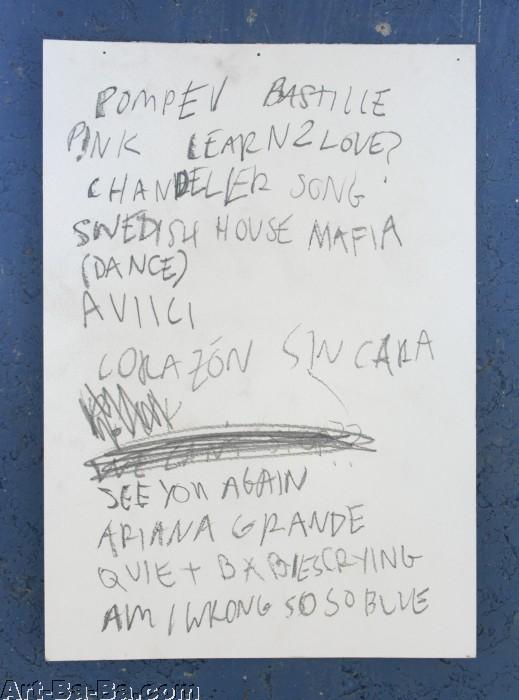 POMPEV BASTILLE
P!NK LEARN 2 LOVE?
CHANDELIER SONG
SWEDISH HOUSE MAFIA
(DANCE)
AVIICI
CORAZÓN SIN CARA
WE CAN'T
SEE YOU AGAIN
ARIANA GRANDE
QUIET BXBIESCRYING
AM I WRONG SO SO BLUE
Art-Ba-Ba.com